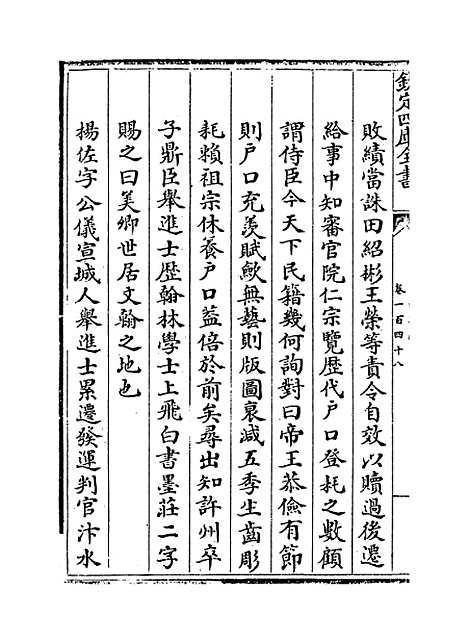 欽定四庫全書
卷一百四十八
敗績當誅田紹彬王榮等責令自效以贖過後遷
給事中知審官院仁宗覽歴代户口登耗之數顧
謂侍臣今天下民籍幾何詢對曰帝王恭儉有節
則户口充羡賦斂無藝則版圖衰減五季生齒彫
耗賴祖宗休養户口葢倍於前矣尋出知許州卒
子鼎臣舉進士歴翰林學士上飛白書墨莊二字
賜之曰美卿世居文翰之地也
楊佐字公儀宣城人舉進士累遷發運判官汴水